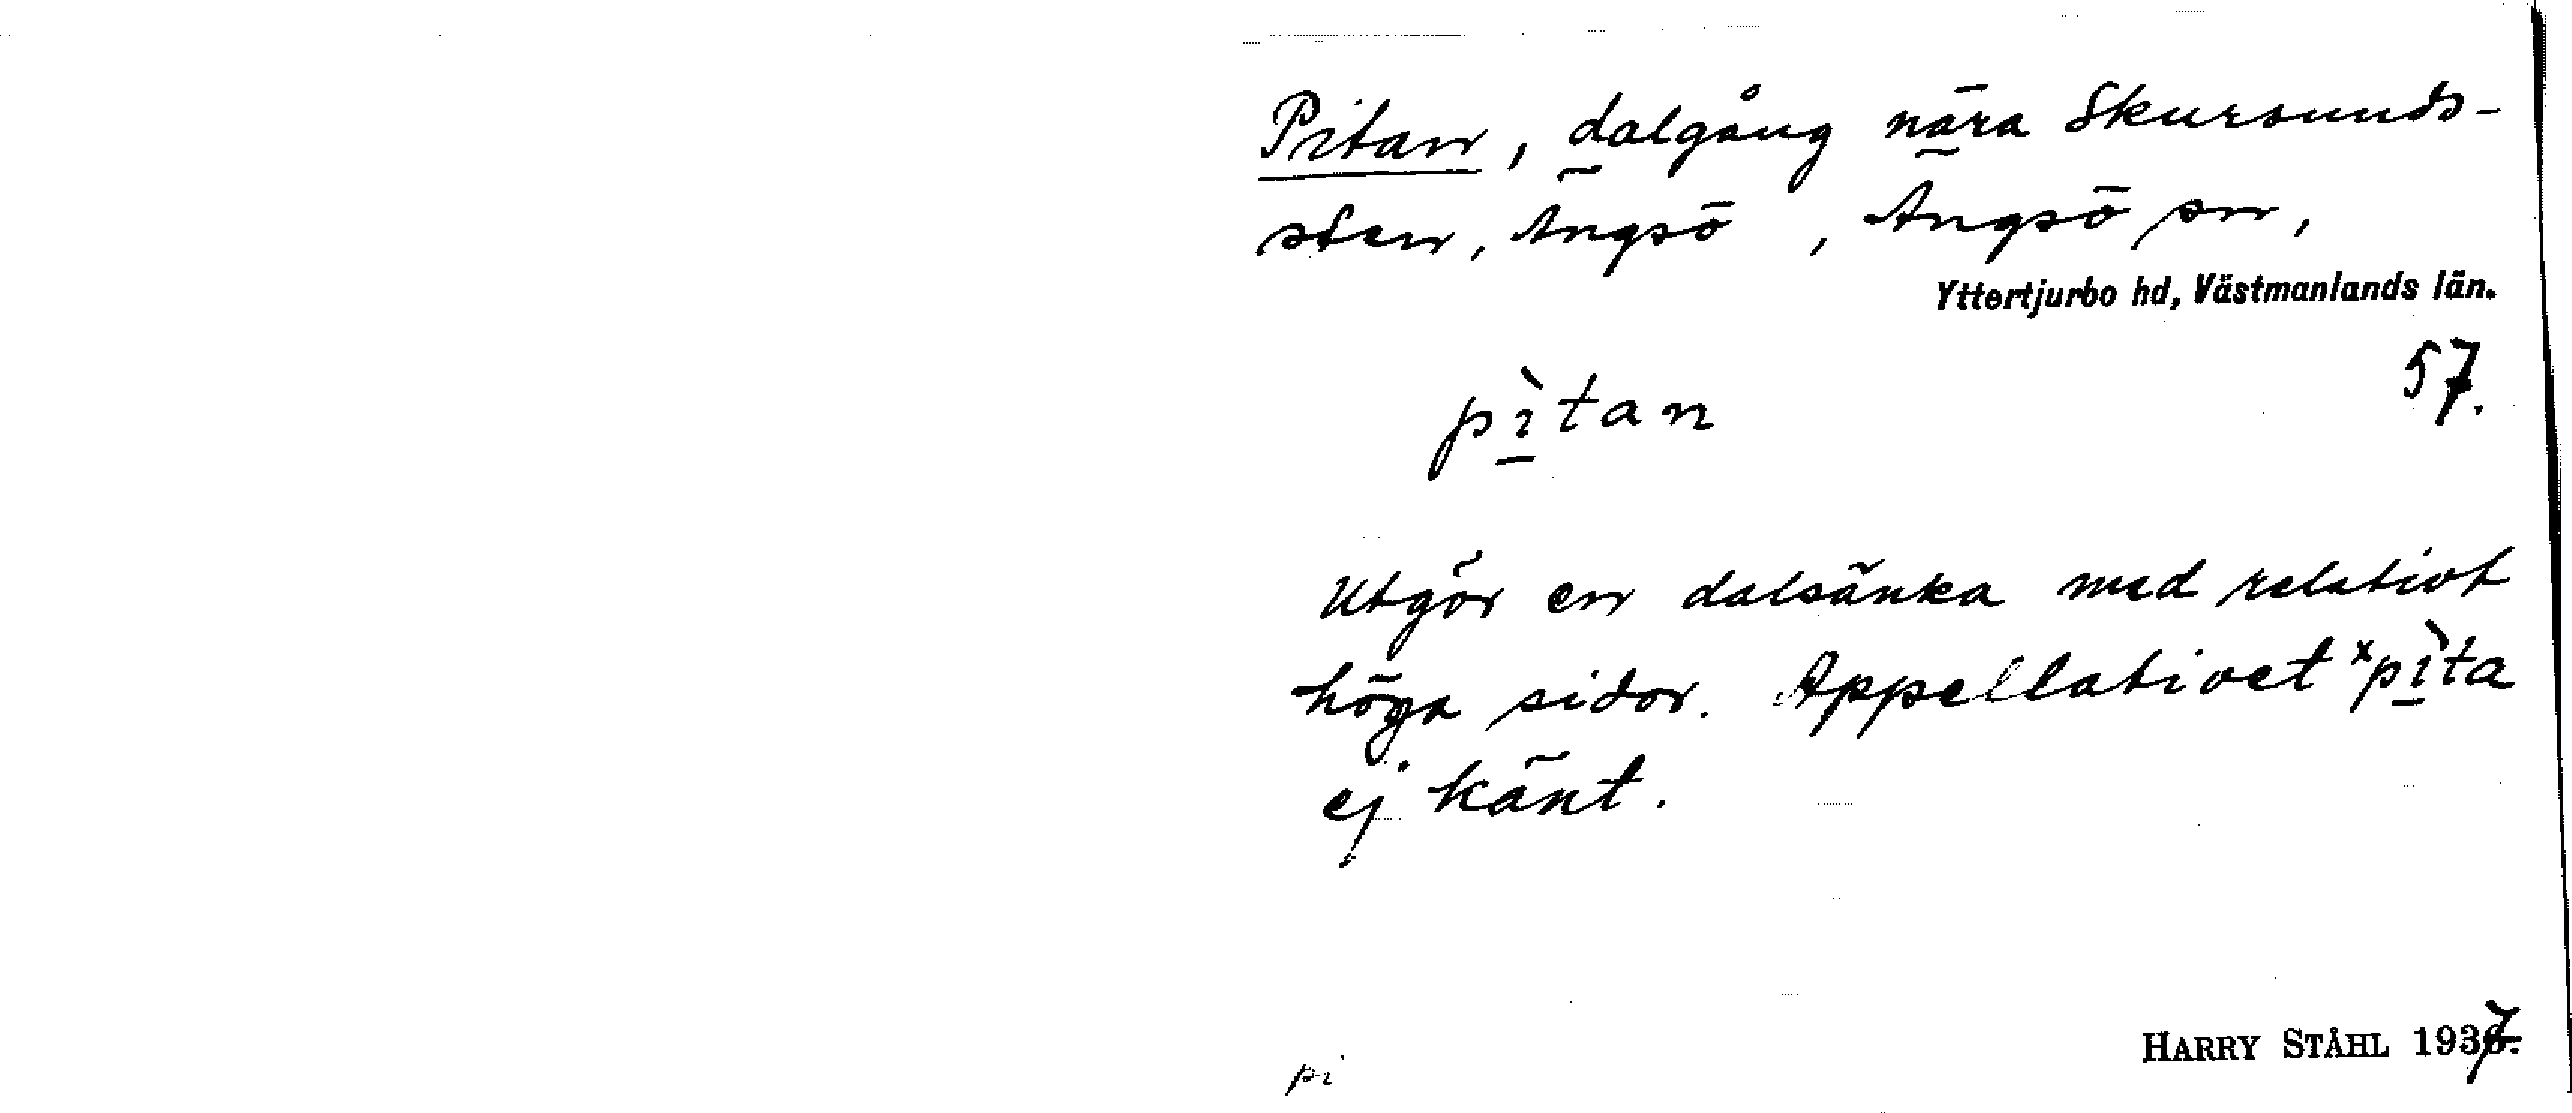 Pitan, dalgång nära Skursunds-
sten, Ängsö, Ängsö sn,
Yttertjurbo hd, Västmanlands län.
57.
pìtan
Utgör en dalsänka med relativt
höga sidor. Appellativet ˣpìta
ej känt.
HARRY STÅHL 1937.
pi